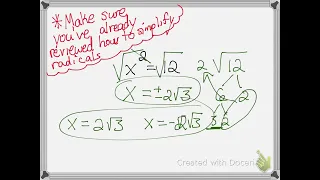 *Make sure
you've already
reviewed how to simplify
radicals
√x² = √12
2√12
6 2
x = ±2√3
3 2
x = 2√3 x = -2√3
Created with Doceri